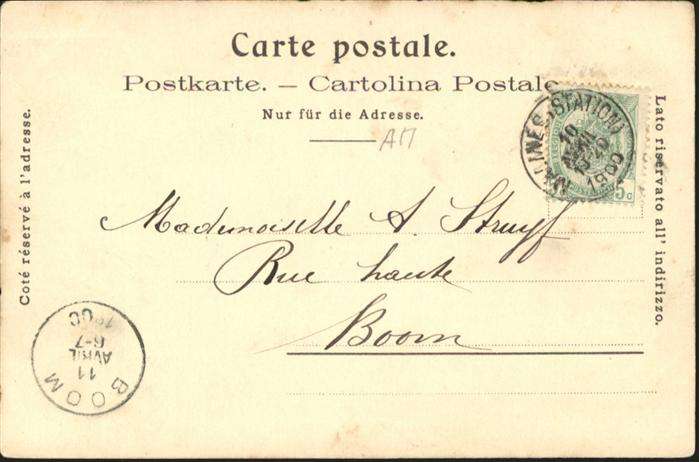 Carte postale.
Postkarte. — Cartolina Postale
Nur für die Adresse.
AM
Coté réservé à l'adresse.
Lato riservato all' indirizzo.
MALINES (STATION)
10
1900
5c
Mademoiselle A. Struyf
Rue haute
Boom
BOOM
11
AVRIL
6-7
1900